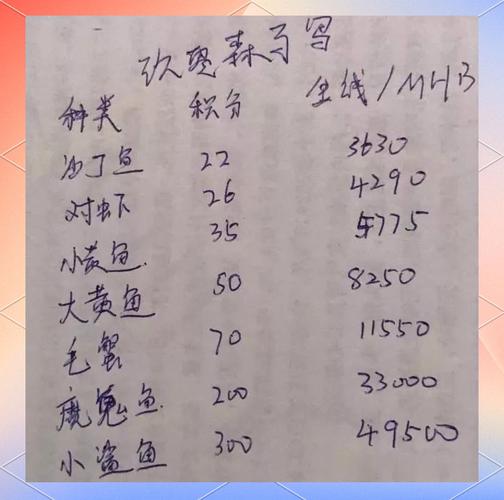 玖 森 手写
种类 积分 /MHB
沙丁鱼 22 3630
对虾 26 4290
小黄鱼. 35 5775
大黄鱼 50 8250
毛蟹 70 11550
魔鬼鱼 200 33000
小鲨鱼 300 49500